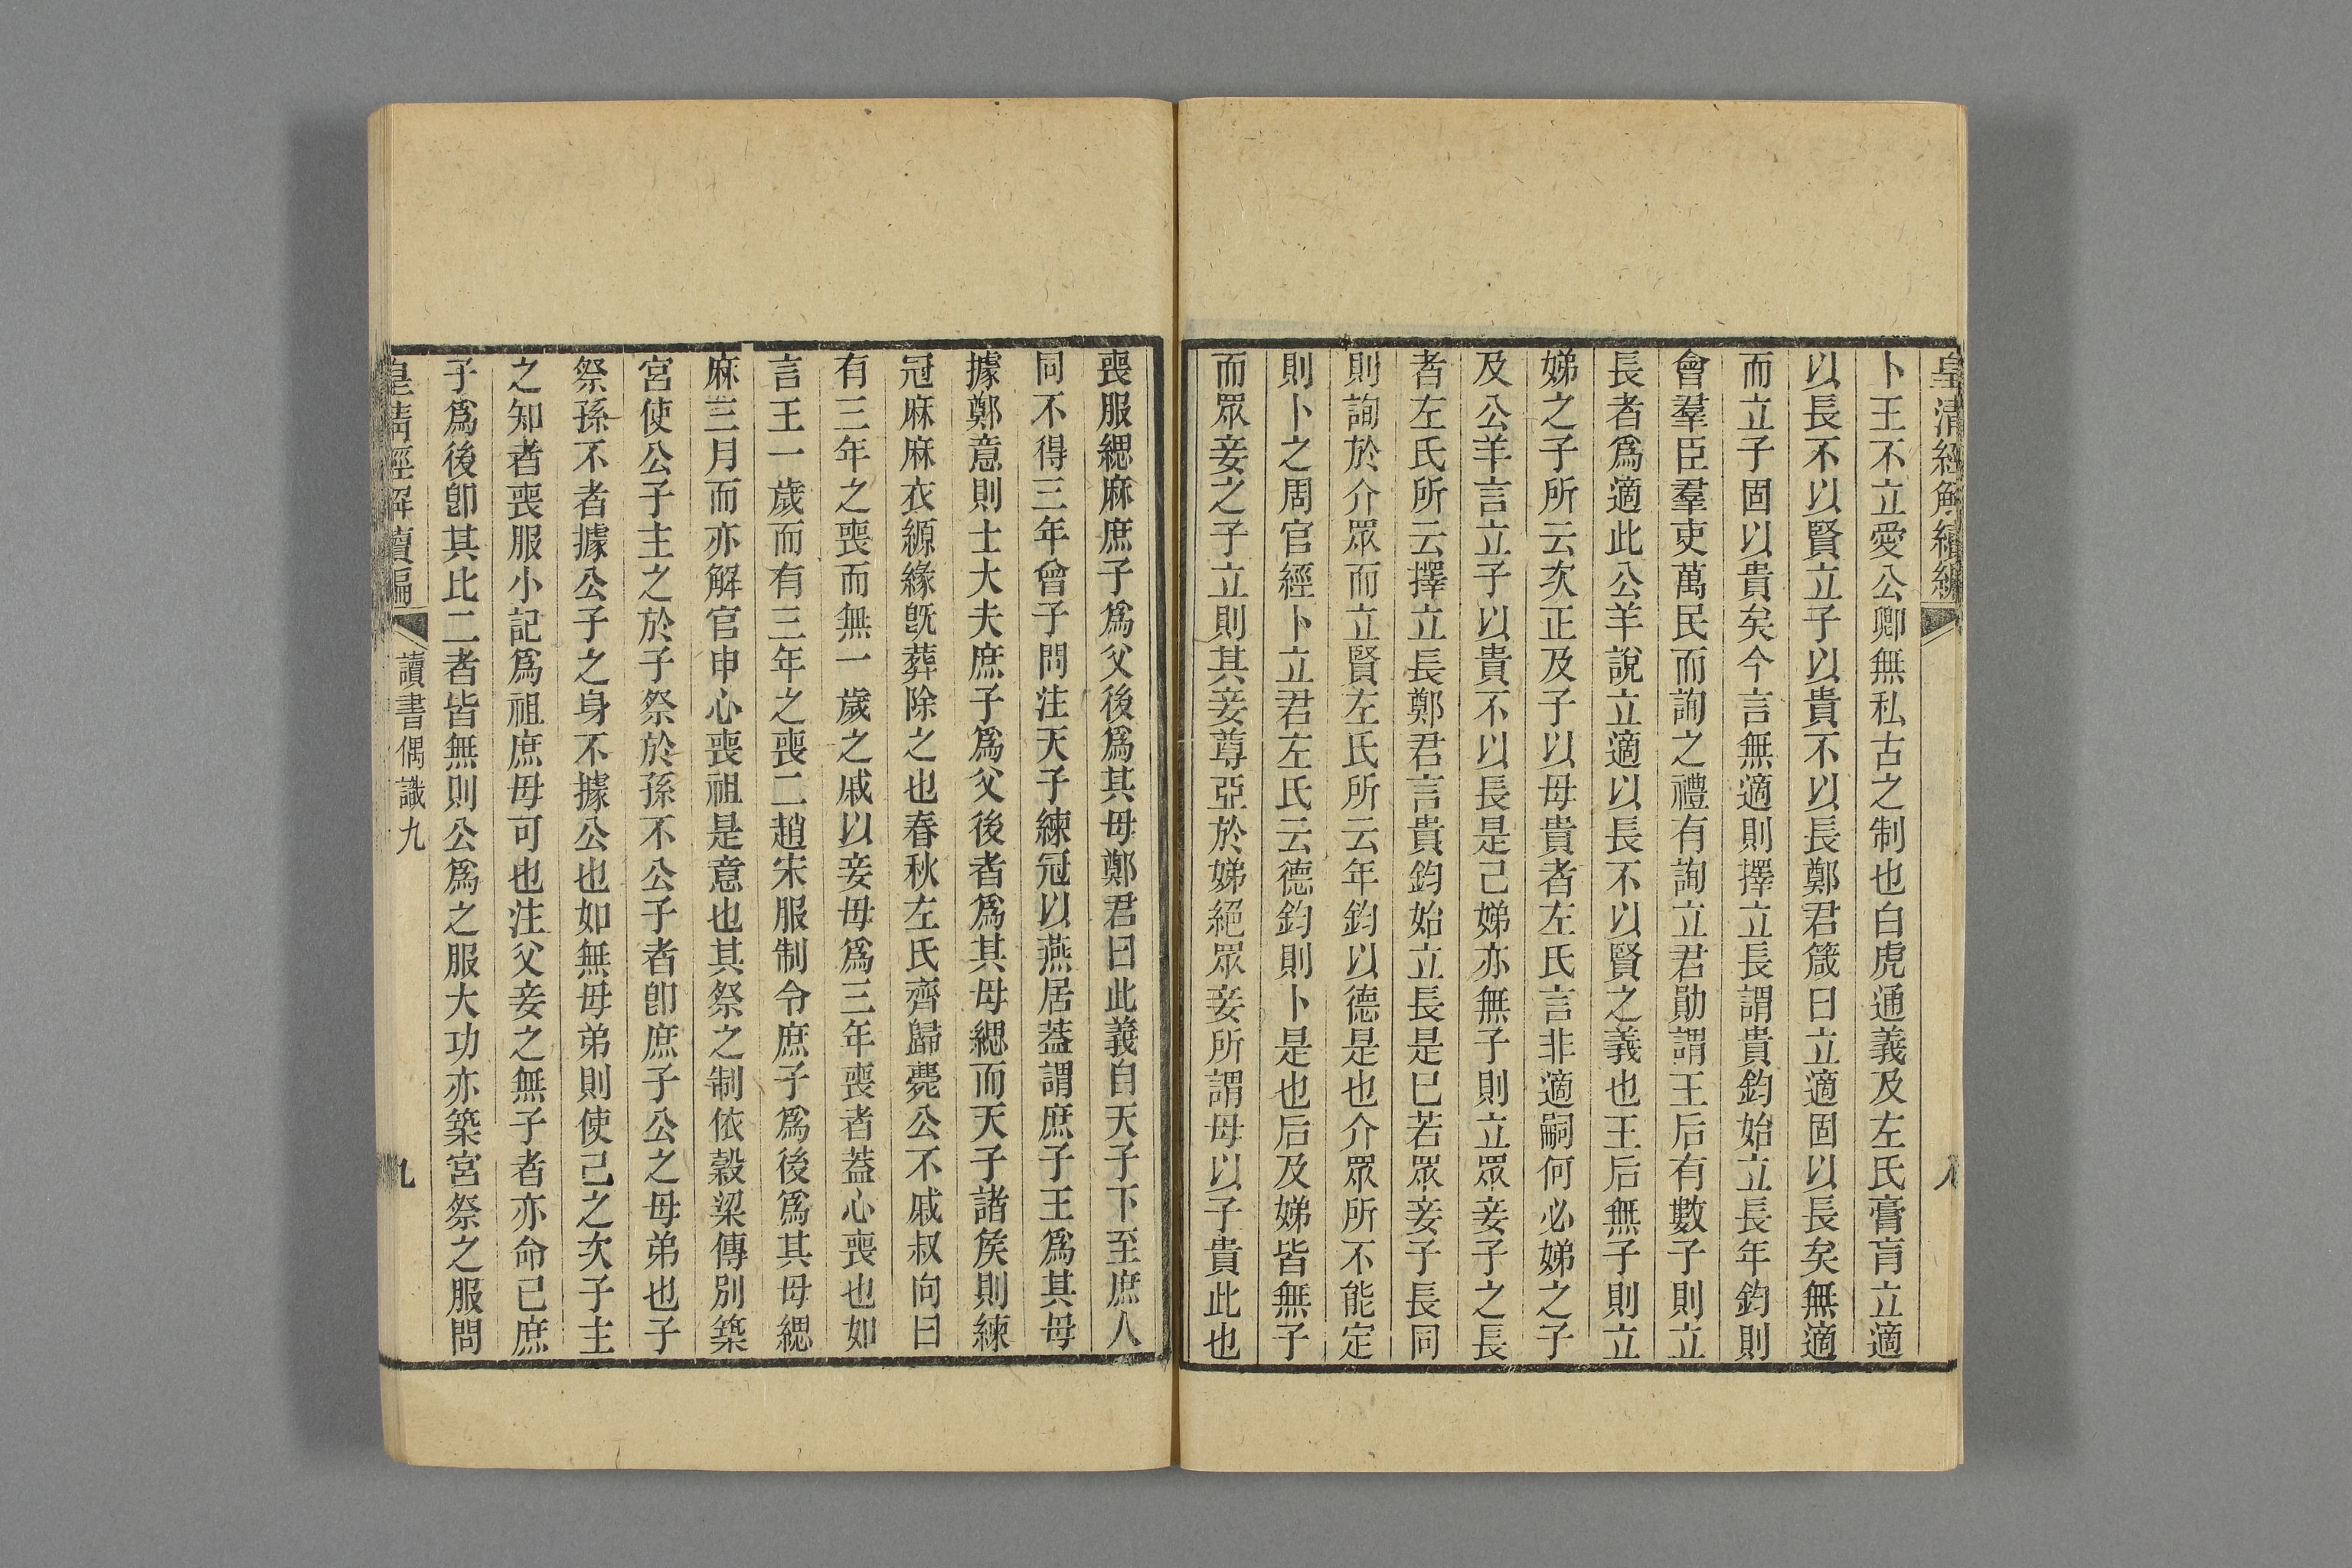 皇清經解續編
八
卜王不立愛公卿無私古之制也白虎通義及左氏膏肓立適
以長不以賢立子以貴不以長鄭君箴曰立適固以長矣無適
而立子固以貴矣今言無適則擇立長謂貴鈞始立長年鈞則
會羣臣羣吏萬民而詢之禮有詢立君勛謂王后有數子則立
長者爲適此公羊說立適以長不以賢之義也王后無子則立
娣之子所云次正及子以母貴者左氏言非適嗣何必娣之子
及公羊言立子以貴不以長是己娣亦無子則立眾妾子之長
者左氏所云擇立長鄭君言貴鈞始立長是已若眾妾子長同
則詢於介眾而立賢左氏所云年鈞以德是也介眾所不能定
則卜之周官經卜立君左氏云德鈞則卜是也后及娣皆無子
而眾妾之子立則其妾尊亞於娣絕眾妾所謂母以子貴此也
喪服緦麻庶子爲父後爲其母鄭君曰此義自天子下至庶人
同不得三年曾子問注天子練冠以燕居蓋謂庶子王爲其母
據鄭意則士大夫庶子爲父後者爲其母緦而天子諸矦則練
冠麻麻衣縓緣旣葬除之也春秋左氏齊歸薨公不戚叔向曰
有三年之喪而無一歲之戚以妾母爲三年喪者蓋心喪也如
言王一歲而有三年之喪二趙宋服制令庶子爲後爲其母緦
麻三月而亦解官申心喪祖是意也其祭之制依穀梁傳別築
宮使公子主之於子祭於孫不公子者卽庶子公之母弟也子
祭孫不者據公子之身不據公也如無母弟則使己之次子主
之知者喪服小記爲祖庶母可也注父妾之無子者亦命己庶
子爲後卽其比二者皆無則公爲之服大功亦築宮祭之服問
皇清經解續編
讀書偶識九
九